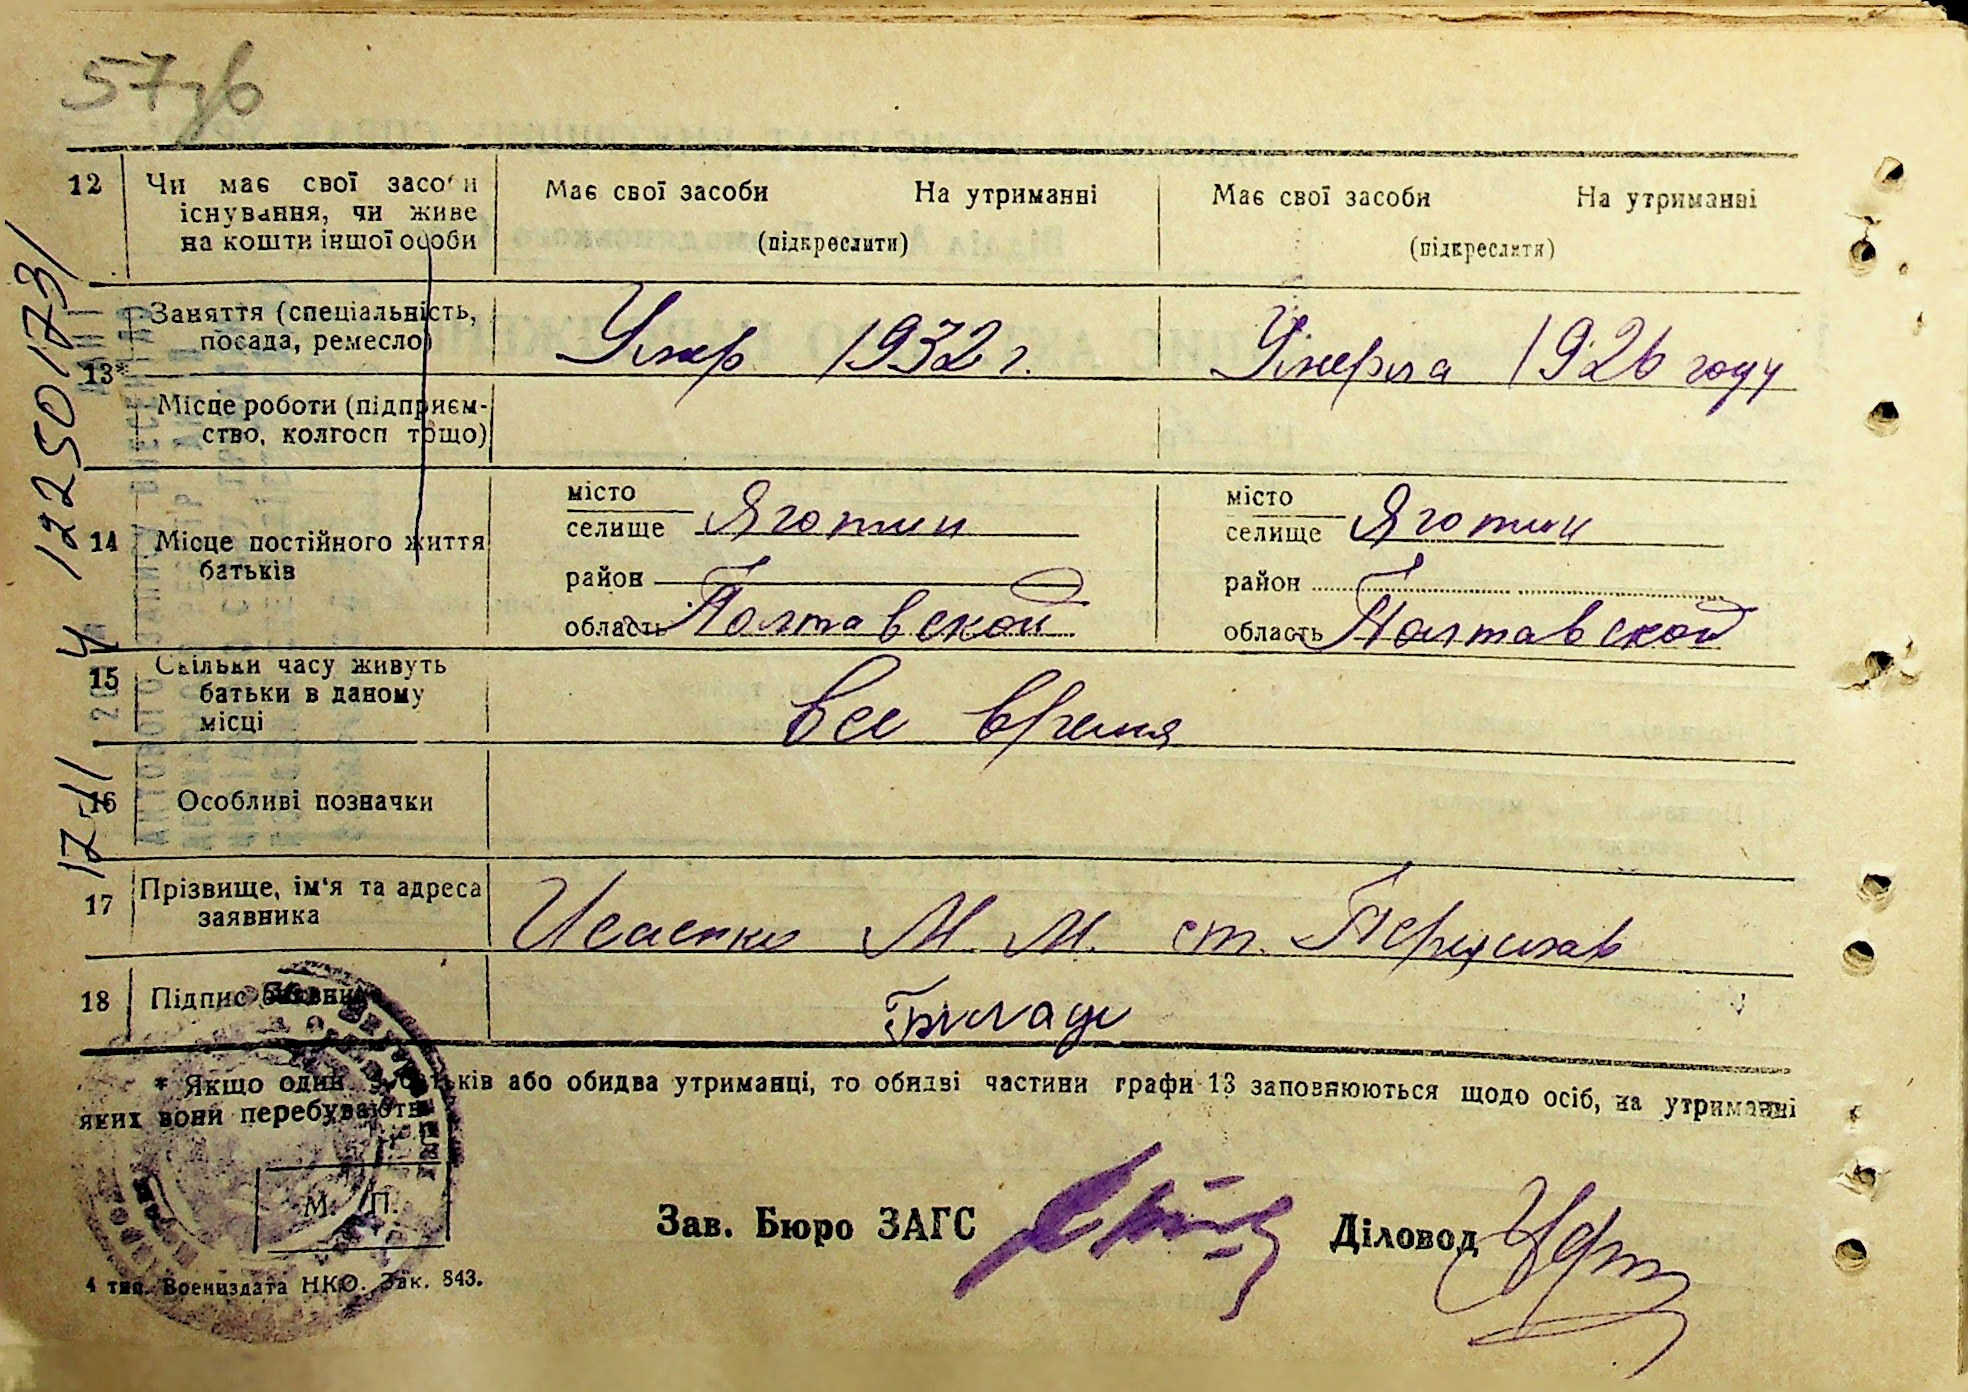 57зв
12 Чи має свої засоби Має свої засоби На утриманні Має свої засоби На утриманні
існування, чи живе
на кошти іншої особи (підкреслити) (підкреслити)
Заняття (спеціальність,
посада, ремесло) Умер 1932 г. Умерла 1926 году
13*
Місце роботи (підприєм-
ство, колгосп тощо)
місто місто
селище Яготин селище Яготин
14 Місце постійного життя
батьків район район
область Полтавской область Полтавской
15 Скільки часу живуть
батьки в даному все время
місці
16 Особливі позначки
17 Прізвище, ім'я та адреса
заявника Исаенко М. М. ст.
18 Підпис заявника
* Якщо один з батьків або обидва утриманці, то обидві частини графи 13 заповнюються щодо осіб, на утриманні
яких вони перебувають.
М. П.
Зав. Бюро ЗАГС Діловод
4 тип. Воениздата НКО. Зак. 843.